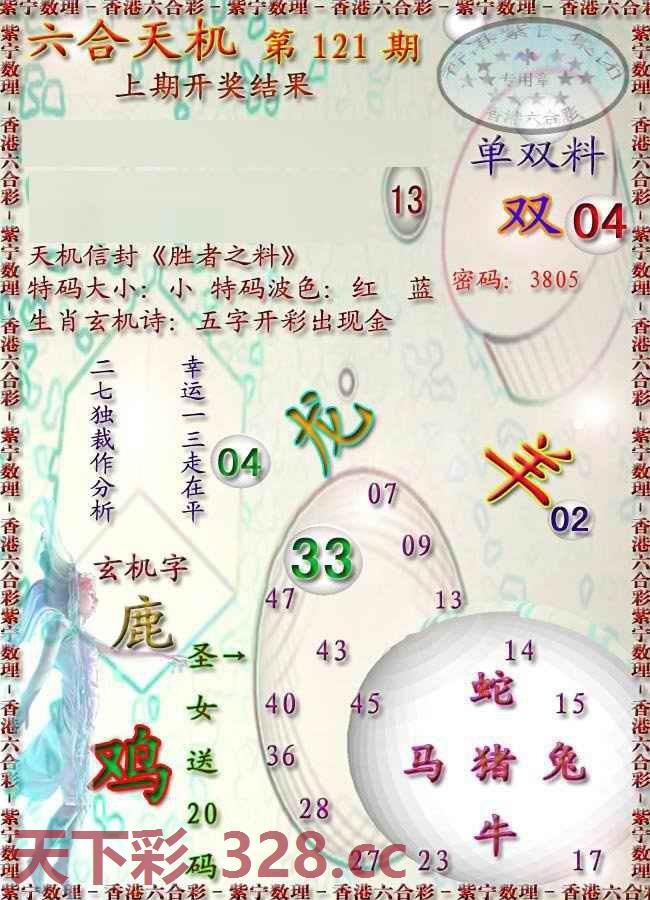 紫宁数理－香港六合彩－紫宁数理－香港六合彩－紫宁数理－香港六合彩－紫宁数理
六合天机 第 121 期
上期开奖结果
专用章
香港六合彩
单双料
双 04
13
天机信封《胜者之料》
特码大小：小 特码波色：红 蓝
密码：3805
生肖玄机诗：五字开彩出现金
幸运一三走在平
二七独裁作分析
04
龙
羊
02
07
33
09
47
13
玄机字
鹿
圣→
女
送
20
码
鸡
43
14
蛇
40
45
15
36
马 猪 兔
28
牛
27
23
17
天下彩 328.cc
紫宁数理－香港六合彩－紫宁数理－香港六合彩－紫宁数理－香港六合彩－紫宁数理